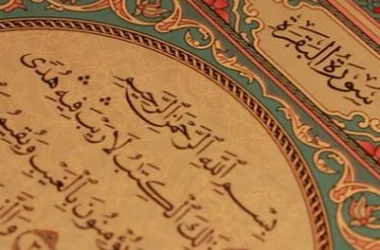 سورة البقرة
بِسْمِ اللَّهِ الرَّحْمَٰنِ الرَّحِيمِ
ذَٰلِكَ الْكِتَابُ لَا رَيْبَ فِيهِ هُدًى
يُؤْمِنُونَ بِالْغَيْبِ وَيُقِيمُو